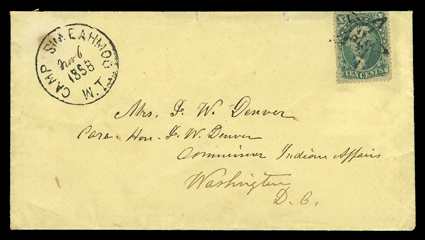 CAMP SIMEAHMOO
Nov 6
1858
W. T.
TEN CENTS
Mrs. J. W. Denver
Care Hon. J. W. Denver
Commissioner Indian Affairs
Washington
D. C.